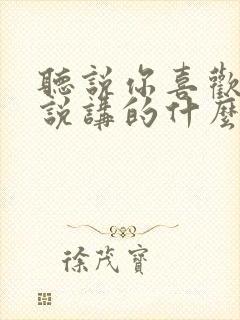 聽說你喜歡
說講的什麼
徐茂寶